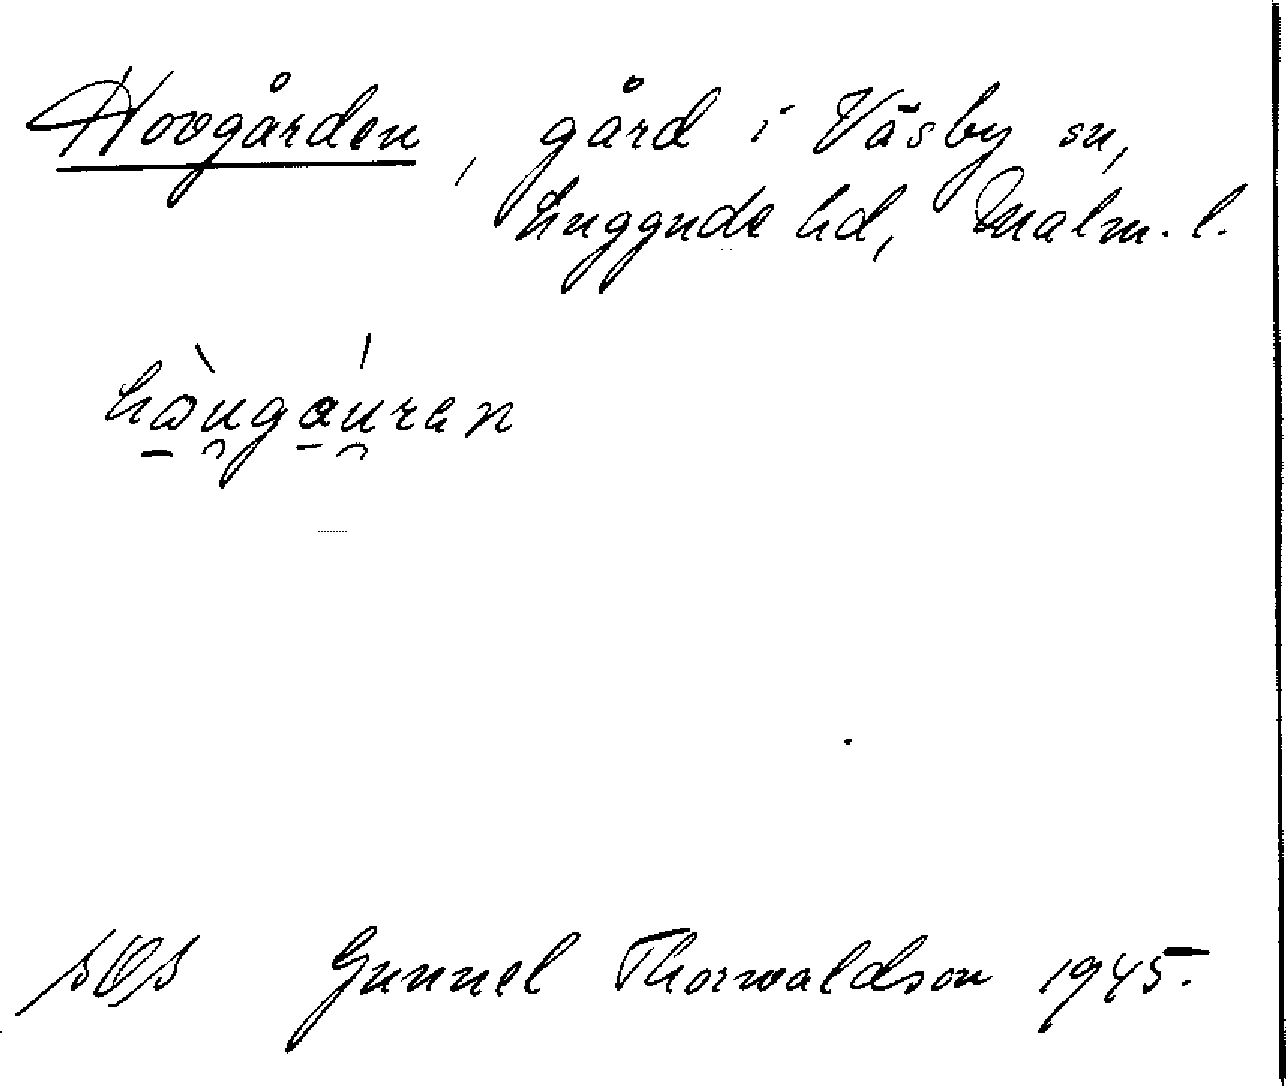 Hovgården, gård i Väsby sn,
Luggude hd, Malm. l.
Gunnel Thorwaldson 1945.